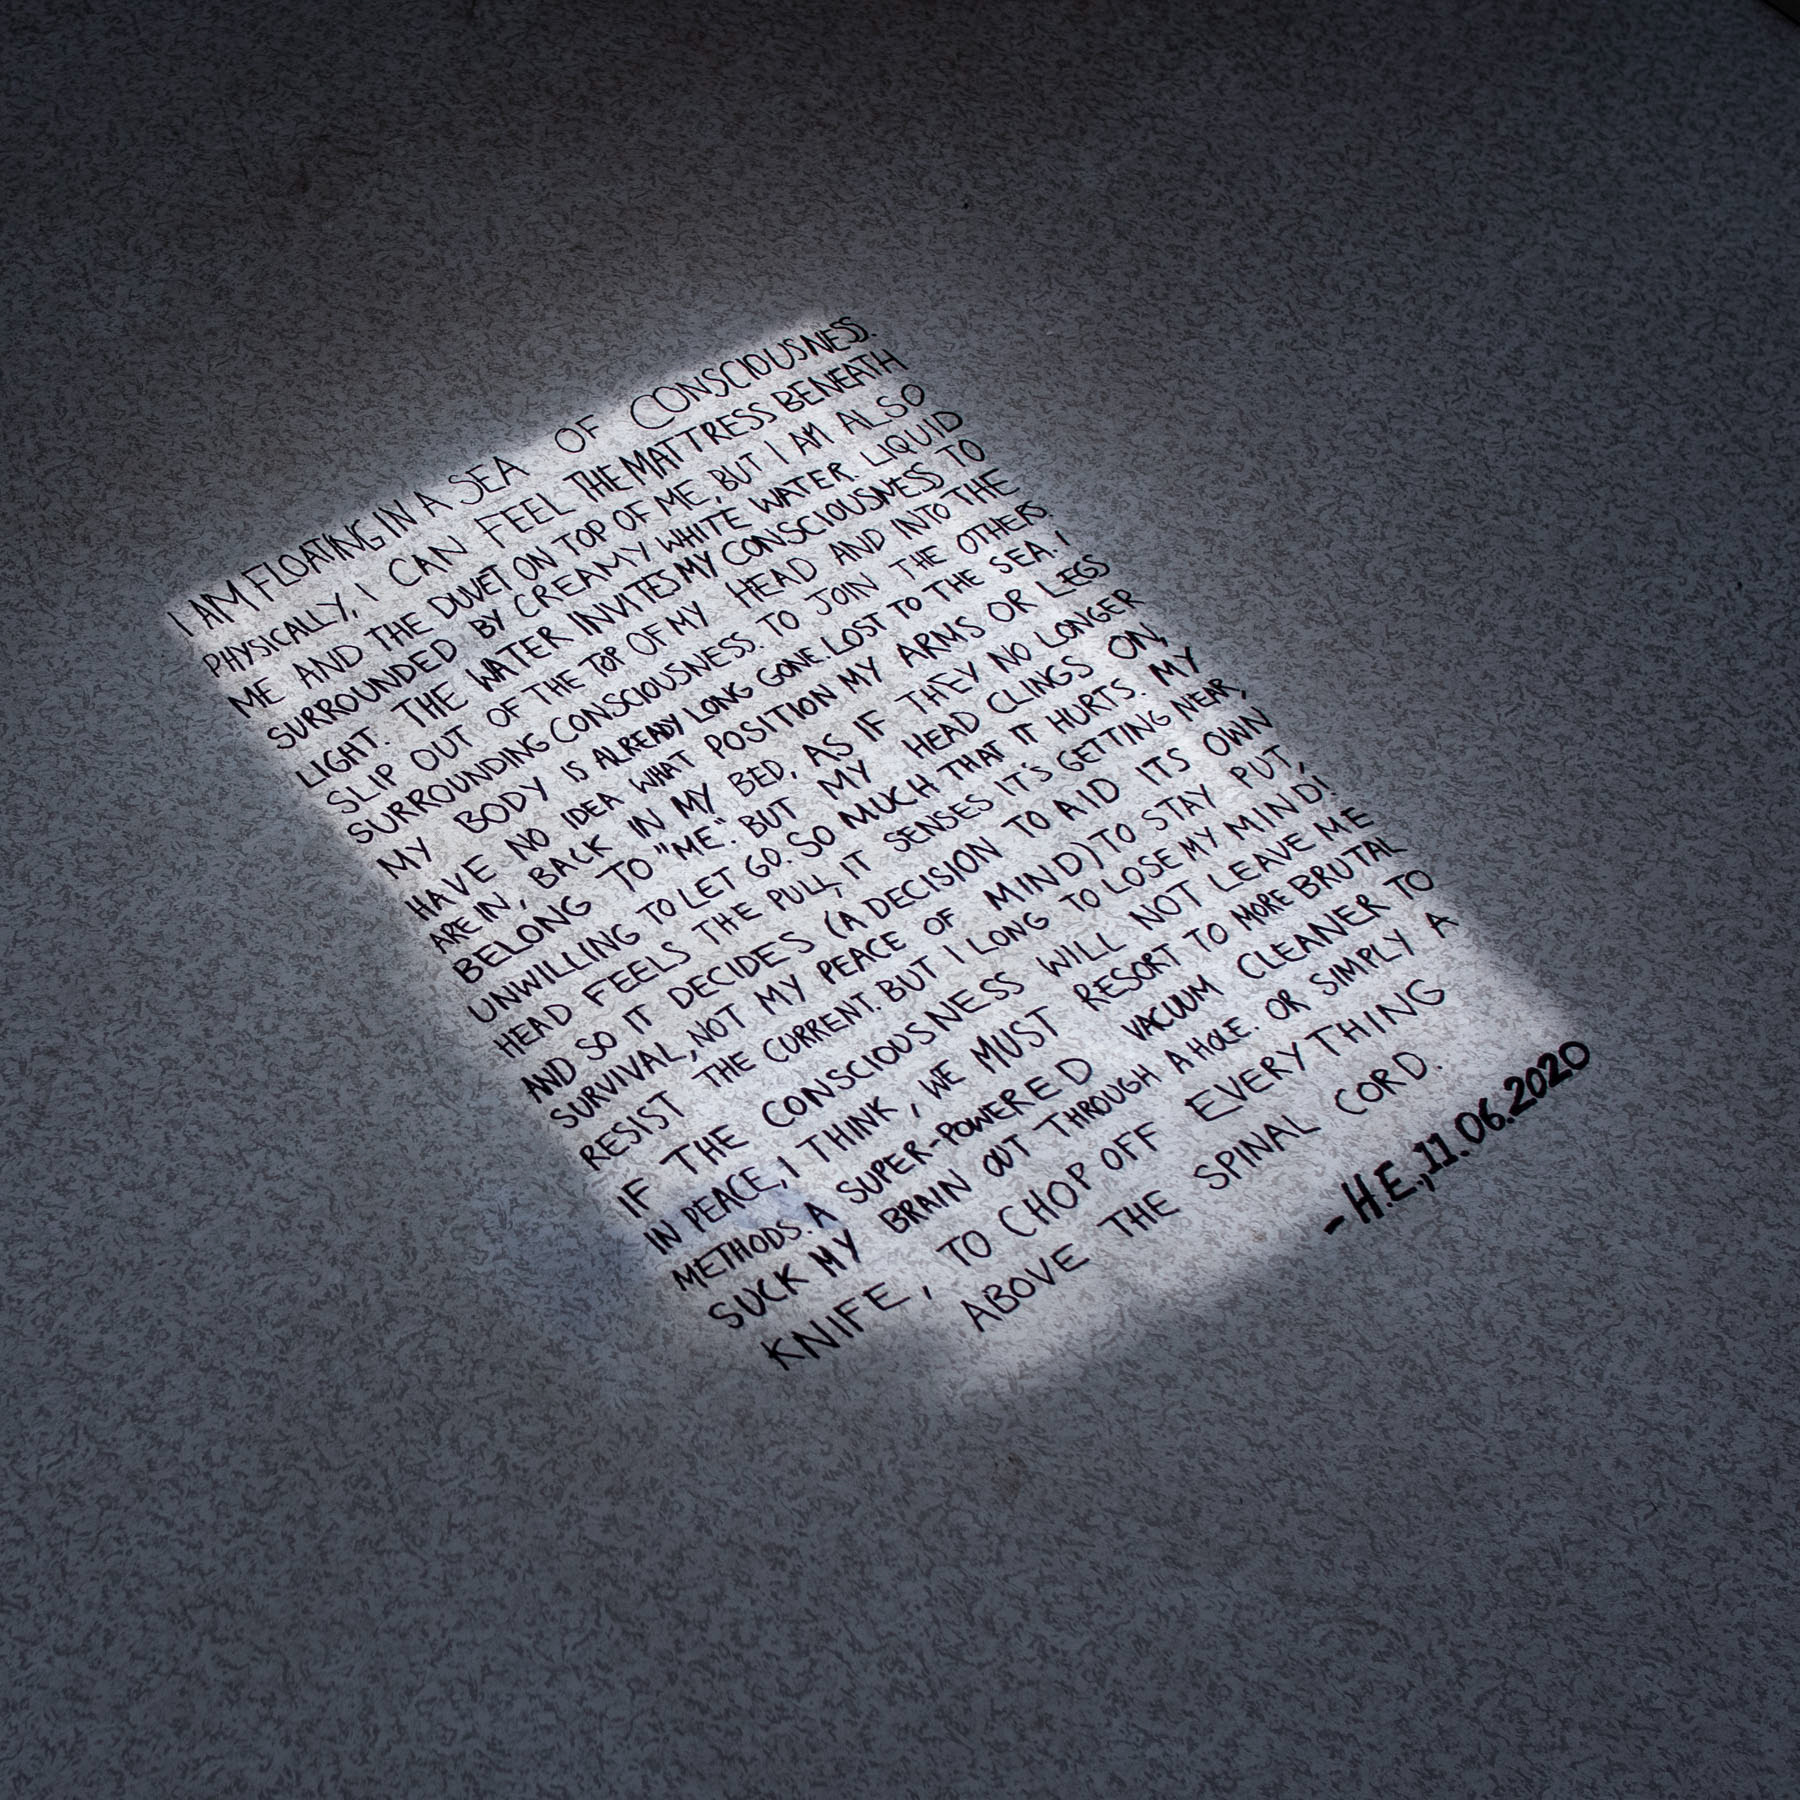 I AM FLOATING IN A SEA OF CONSCIOUSNESS.
PHYSICALLY, I CAN FEEL THE MATTRESS BENEATH
ME AND THE DUVET ON TOP OF ME, BUT I AM ALSO
SURROUNDED BY CREAMY WHITE WATER. LIQUID
LIGHT. THE WATER INVITES MY CONSCIOUSNESS TO
SLIP OUT OF THE TOP OF MY HEAD AND INTO THE
SURROUNDING CONSCIOUSNESS. TO JOIN THE OTHERS.
MY BODY IS ALREADY LONG GONE. LOST TO THE SEA. I
HAVE NO IDEA WHAT POSITION MY ARMS OR LEGS
ARE IN, BACK IN MY BED, AS IF THEY NO LONGER
BELONG TO "ME." BUT MY HEAD CLINGS ON,
UNWILLING TO LET GO. SO MUCH THAT IT HURTS. MY
HEAD FEELS THE PULL, IT SENSES IT'S GETTING NEAR,
AND SO IT DECIDES (A DECISION TO AID ITS OWN
SURVIVAL, NOT MY PEACE OF MIND) TO STAY PUT,
RESIST THE CURRENT. BUT I LONG TO LOSE MY MIND!
IF THE CONSCIOUSNESS WILL NOT LEAVE ME
IN PEACE, I THINK, WE MUST RESORT TO MORE BRUTAL
METHODS. A SUPER-POWERED VACUUM CLEANER TO
SUCK MY BRAIN OUT THROUGH A HOLE. OR SIMPLY A
KNIFE, TO CHOP OFF EVERYTHING
ABOVE THE SPINAL CORD.
- H.E., 11.06.2020